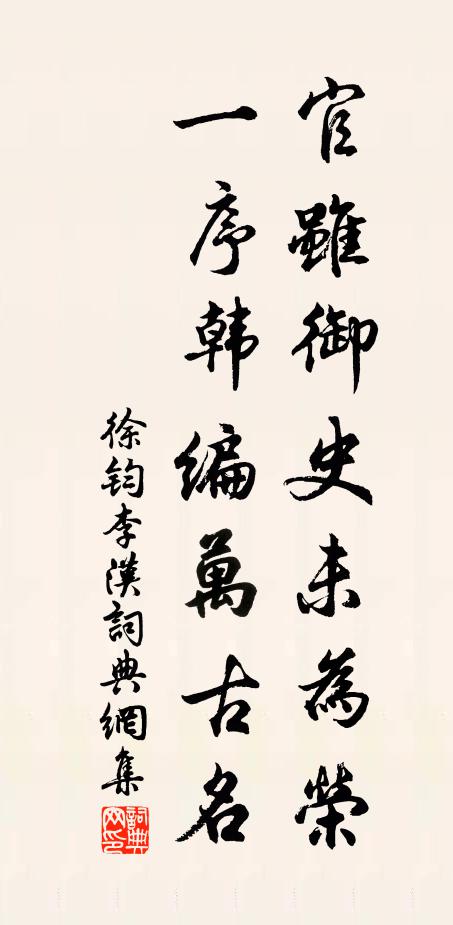 官雖御史未為榮
一序韓編萬古名
徐鈞李漢詞典網集
詞典網印